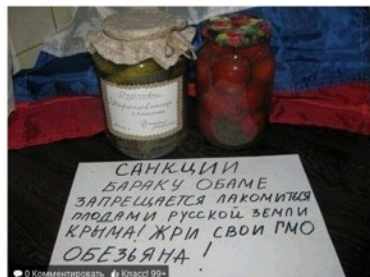 САНКЦИИ
БАРАКУ ОБАМЕ
ЗАПРЕЩАЕТСЯ ЛАКОМИТЬСЯ
ПЛОДАМИ РУССКОЙ ЗЕМЛИ
КРЫМА! ЖРИ СВОИ ГМО
ОБЕЗЬЯНА!
0 Комментировать Класс! 99+